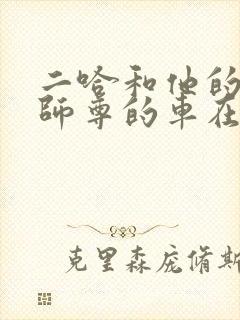 二哈和他的
師尊的車在
克里森庞脩斯